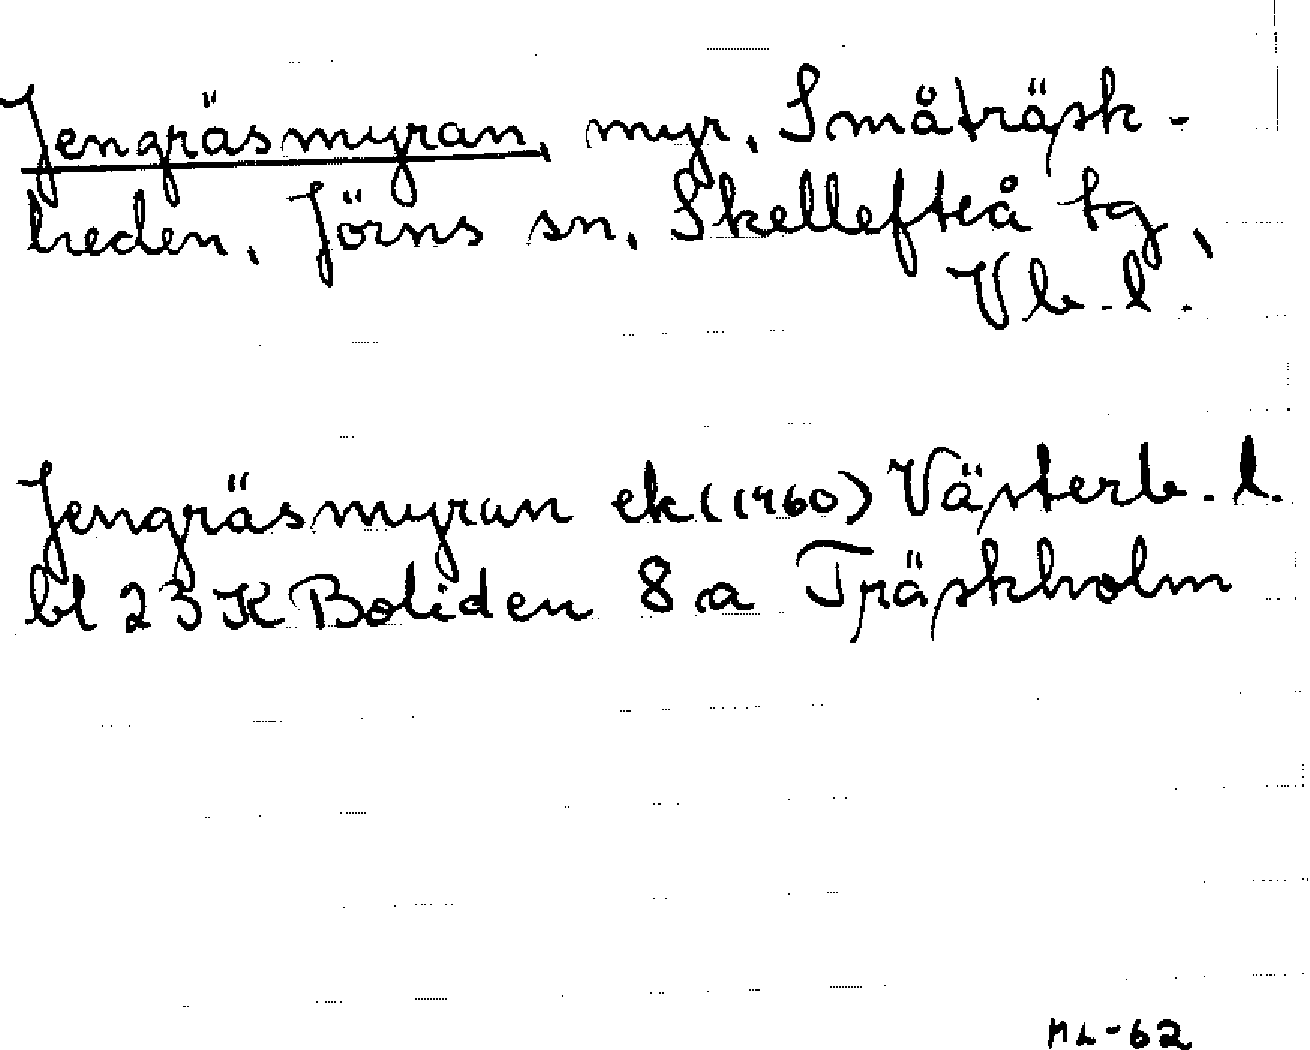 Jengräsmyran, myr, Småträsk-
heden, Jörns sn, Skellefteå tg,
Vb. l.
Jengräsmyran ek (1960) Västerb. l.
bl 23 K Boliden 8 a Träskholm
ML-62